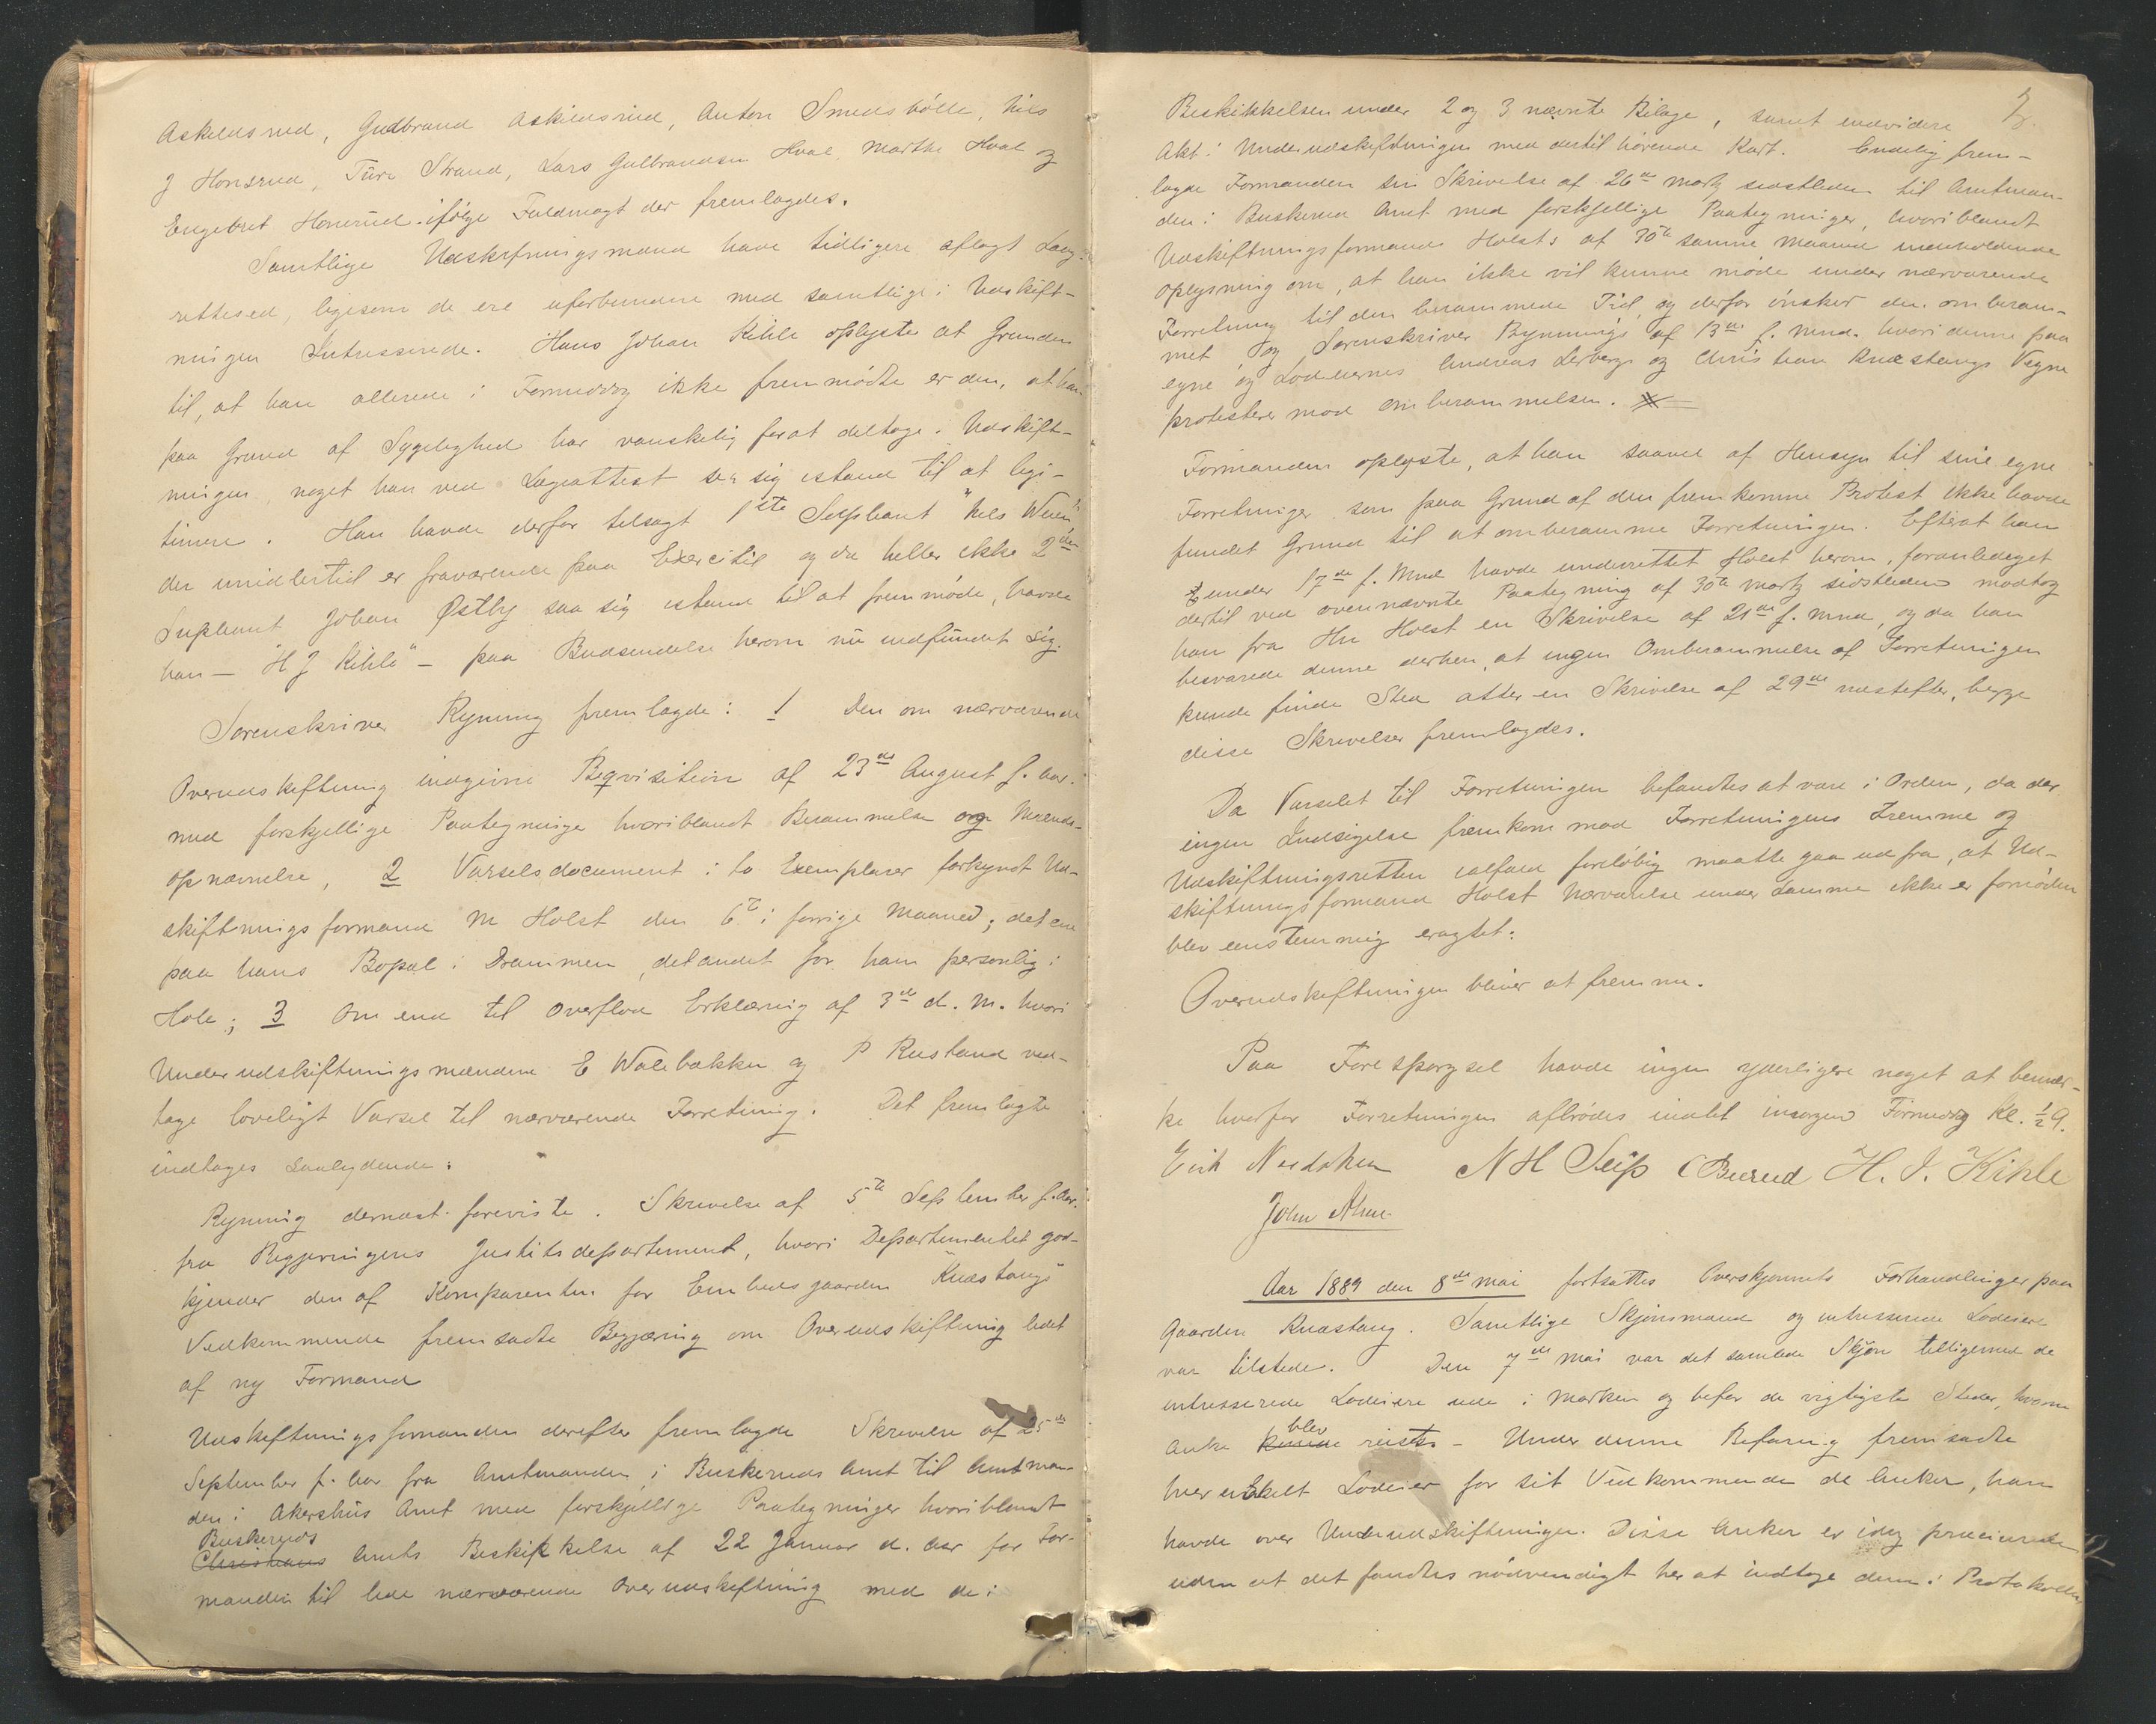 Askildsrud, Gudbrand Askildsrud, Anton Smedsbölle, Nils
J Honsrud, Ture Strand, Lars Gulbrandsen Hval, Marthe Hval og
Engebret Honerud ifölge Fuldmagt der fremlagdes.
Samtlige Udskiftningsmænd have tidligere aflagt Lag-
rettesed, ligesom de ere uforbundne med samtlige i Udskift-
ningen Intresserede. Hans Johan Kihle oplyste at Grunden
til, at han allerede i Formiddag ikke fremmödte er den, at han
paa Grund af Sygelighed har vanskelig forat deltage i Udskift-
ningen, noget han ved Lægeattest ser sig istand til at legi-
timere. Han havde derfor tilsagt 1ste Supleant "Nils Weien"
der imidlertid er fraværende paa Exercitie og da heller ikke 2den
Supleant Johan Østby saa sig istand til at fremmöde, havde
han — "H J Kihle" — paa Budsendelse herom nu indfundet sig.
Sorenskriver Rynning fremlagde: 1 Den om nærværende
Overudskiftning indgivne Reqvisition af 23de August f. Aar.
med forskjellige Paategninger hvoriblandt Berammelse og Mænds-
opnævnelse, 2 Varselsdocument i to Exemplarer forkyndt Ud-
skiftningsformand M Holst den 6te i forrige Maaned; det ene
paa hans Bopæl i Drammen, det andet for ham personlig i
Hole; 3 Om end til Overflod Erklæring af 3de d. M. hvori
Underudskiftningsmændene E Wolebækken og P Rustand ved-
tage lovligt Varsel til nærværende Forretning. Det fremlagte
indtages saalydende:
Rynning dernæst foreviste Skrivelse af 5te September f. Aar.
fra Regjeringens Justitsdepartement, hvori Departementet god-
kjender den af Komparenten for Embedsgaarden Knæstangs
Vedkommende fremsadte Begjæring om Overudskiftning ledet
af ny Formand
Udskiftningsformanden derefter fremlagde Skrivelse af 25de
September f. Aar fra Amtmanden i Buskeruds Amt til Amtman-
den i Akershus Amt med forskjellige Paategninger hvoriblandt
Buskeruds
Christians Amts Beskikkelse af 22 Januar d. Aar for For-
manden til lede nærværende Overudskiftning med de i
3.
Beskikkelsen under 2 og 3 nævnte Bilage, samt endvidere
Akt i Underudskiftningen med dertil hörende Kart. Endelig frem-
lagde Formanden sin Skrivelse af 26de Marts sidstleden til Amtman-
den i Buskerud Amt med forskjellige Paategninger, hvoriblandt
Udskiftningsformand Holsts af 30te samme Maaned indeholdende
Oplysning om, at han ikke vil kunne möde under nærværende
Forretning til den berammede Tid og derfor önsker den omberam-
met og Sorenskriver Rynnings af 13de f. Mnd. hvori denne paa
egne og Lodeiernes Andreas Lerbergs og Christian Knæstangs Vegne
protesterer mod Omberammelsen.
Formanden oplyste, at han saavel af Hensyn til sine egne
Forretninger som paa Grund af den fremkomne Protest ikke havde
fundet Grund til at omberamme Forretningen. Efterat han
under 17de f. Mnd havde underrettet Holst herom, foranlediget
dertil ved ovennævnte Paategning af 30te Marts sidstleden modtog
han fra Hr Holst en Skrivelse af 21de f. Mnd, og da han
besvarede denne derhen, at ingen Omberammelse af Forretningen
kunde finde Sted atter en Skrivelse af 29de næstefter, begge
disse Skrivelser fremlagdes.
Da Varselet til Forretningen befandtes at være i Orden, da der
ingen Indsigelse fremkom mod Forretningens Fremme og
Udskiftningsretten ialfald foreløbig maatte gaa ud fra, at Ud-
skiftningsformand Holst Nærværelse under Samme ikke er fornöden
blev eenstemmig eragtet:
Overudskiftningen bliver at fremme.
Paa Forespørgsel havde ingen yderligere noget at bemær-
ke hvorfor Forretningen afbrödes indtil imorgen Formiddag Kl. ½ 9.
Erik Nordohen N H Seip C Burud H. J. Kihle
John Alme
Aar 1889 den 8de Mai fortsattes Overskjønnets Forhandlinger paa
Gaarden Knæstang. Samtlige Skjönsmænd og intresserede Lodeiere
var tilstede. Den 7de Mai var det samlede Skjön tilligemed de
intresserede Lodeiere ude i Marken og befor de vigtigste Steder, hvorom
blev
Anke kunde reises — Under denne Befaring fremsadte
hver enkelt Lodeier for sit Vedkommende de Anker, han
havde over Underudskiftningen. Disse Anker er idag præciserede
uden at det fandtes nödvendigt her at indtage dem i Protokollen,